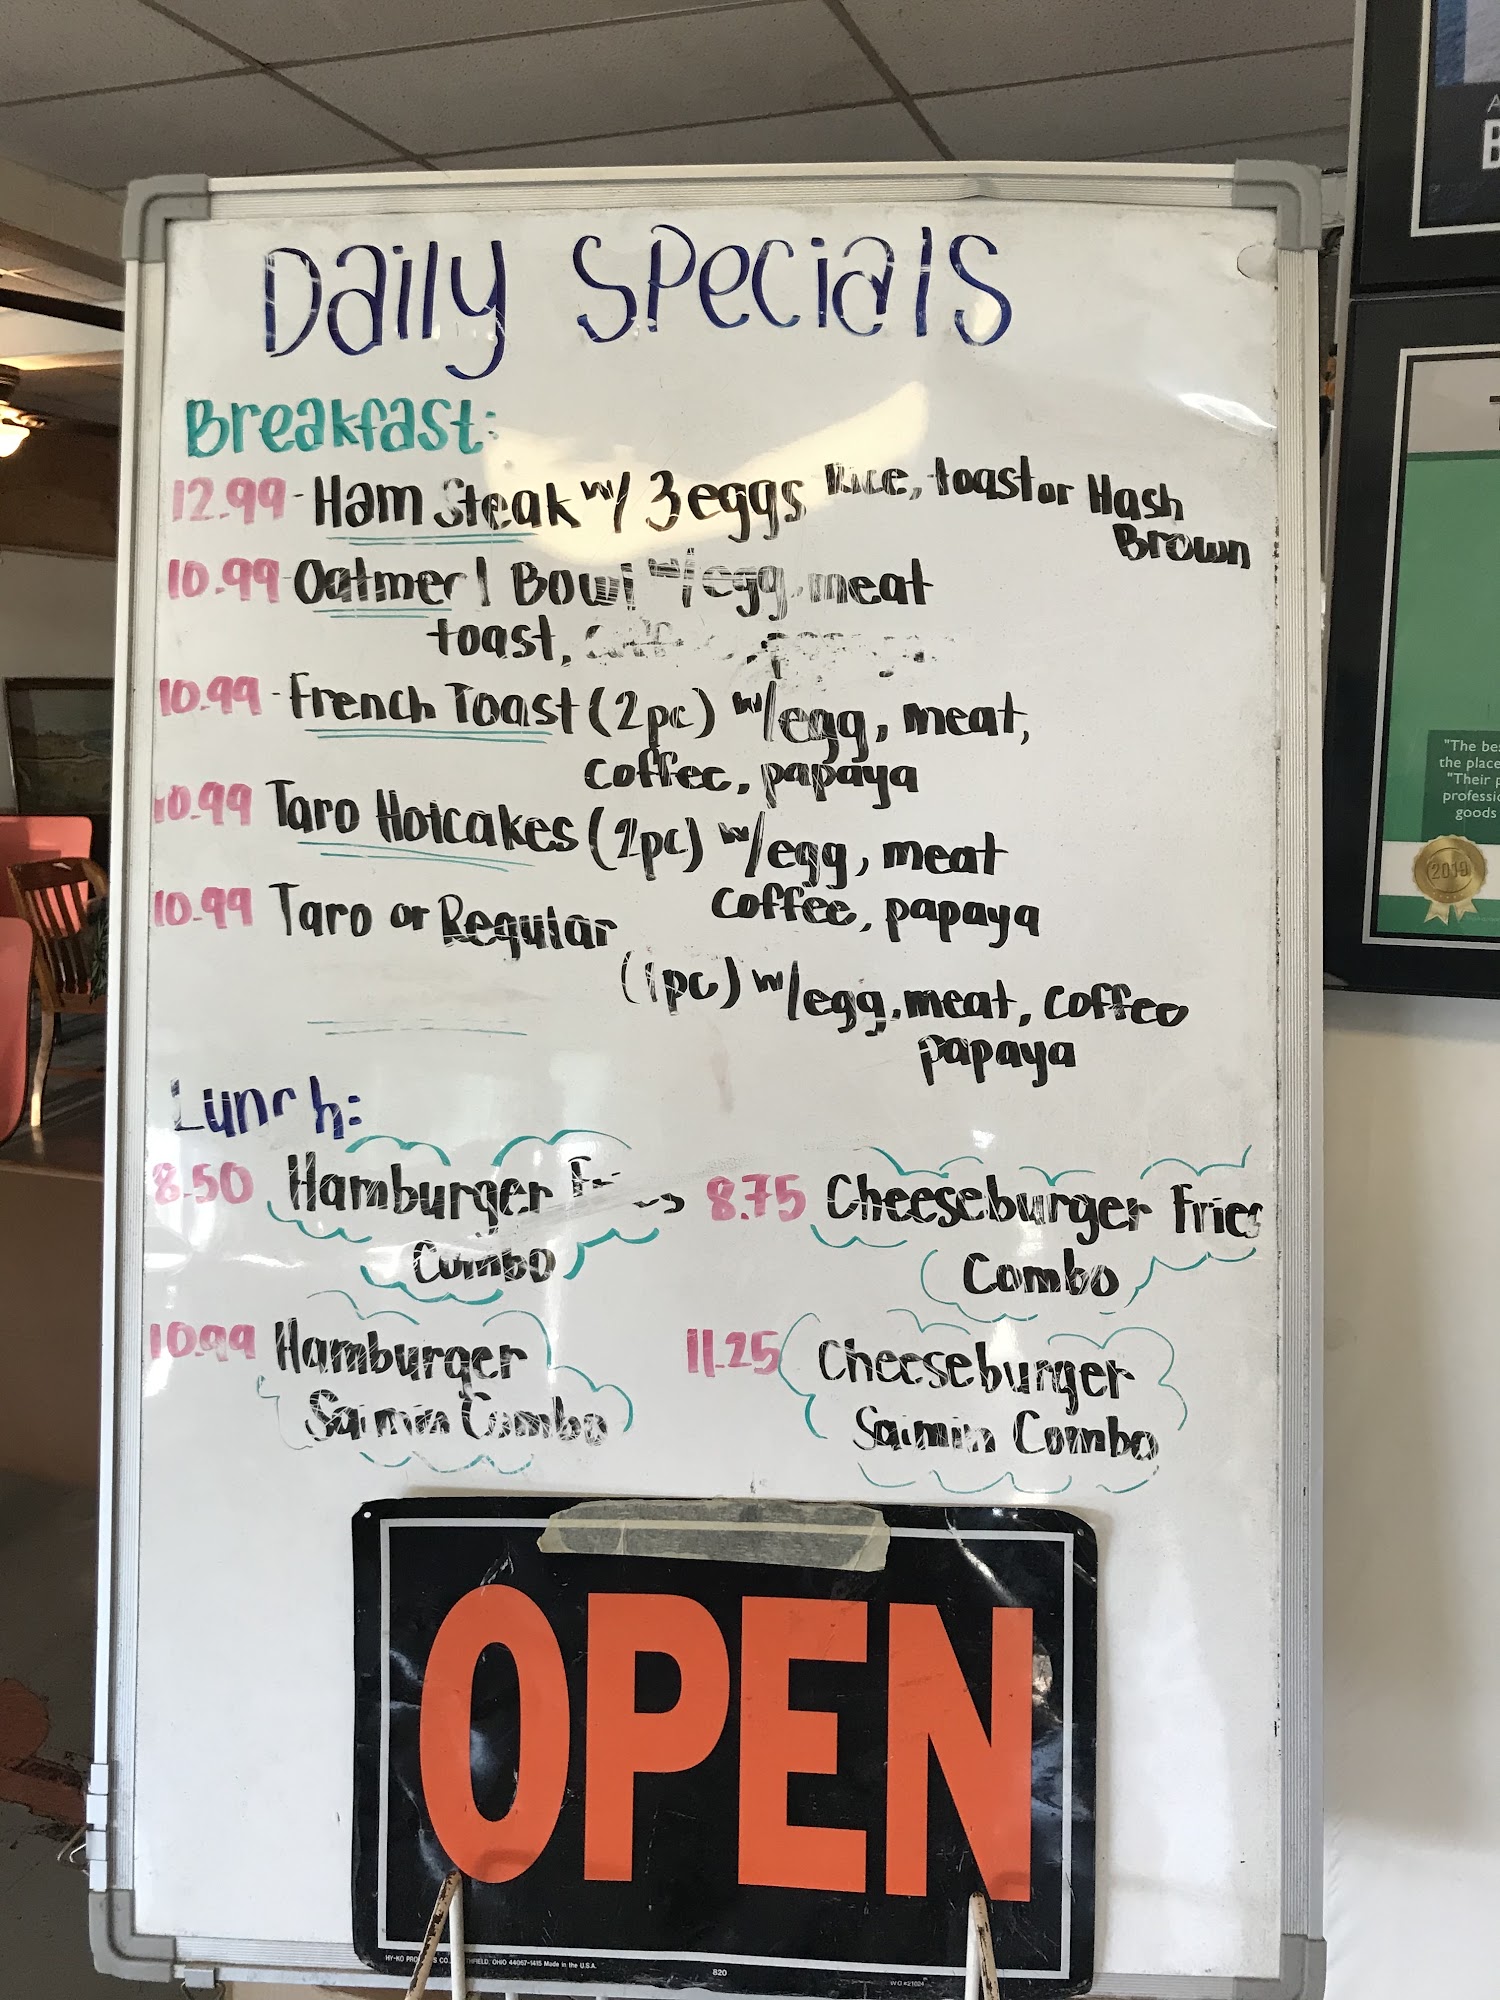 Daily Specials
Breakfast:
12.99 - Ham Steak w/ 3 eggs Rice, toast or Hash
Brown
10.99 - Oatmeal Bowl w/egg, meat
toast,
10.99 - French Toast (2pc) w/egg, meat,
coffee, papaya
10.99 Taro Hotcakes (2pc) w/egg, meat
coffee, papaya
10.99 Taro or Regular
(1pc) w/egg, meat, coffee
papaya
Lunch:
8.50 Hamburger Fries
Combo
8.75 Cheeseburger Fries
Combo
10.99 Hamburger
Saimin Combo
11.25 Cheeseburger
Saimin Combo
OPEN
OHIO 44067-1415 Made in the U.S.A.
820
"The be
the place
"Their p
professio
goods
2019